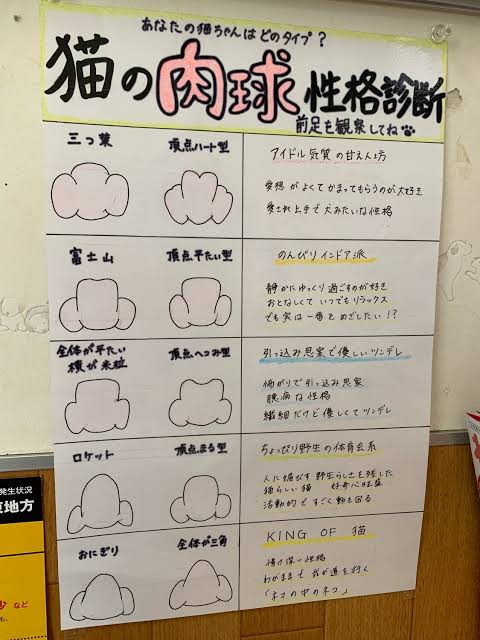 あなたの猫ちゃんはどのタイプ?
猫の肉球性格診断
前足を観察してね
三つ葉
頂点ハート型
アイドル気質の甘えん坊
愛想がよくてかまってもらうのが大好き
愛され上手で犬みたいな性格
富士山
頂点平たい型
のんびりインドア派
静かにゆっくり過ごすのが好き
おとなしくていつでもリラックス
でも実は一番をめざしたい!?
全体が平たい
横が米粒
頂点へこみ型
引っ込み思案で優しいツンデレ
怖がりで引っ込み思案
臆病な性格
繊細だけど優しくてツンデレ
ロケット
頂点まる型
ちょっぴり野生の体育会系
人に媚びず野生らしさを残した
猫らしい猫 好奇心旺盛
活動的ですごく動き回る
おにぎり
全体が三角
KING OF 猫
情け深い性格
わがままで我が道を行く
「ネコの中のネコ」
発生状況
東地方
など